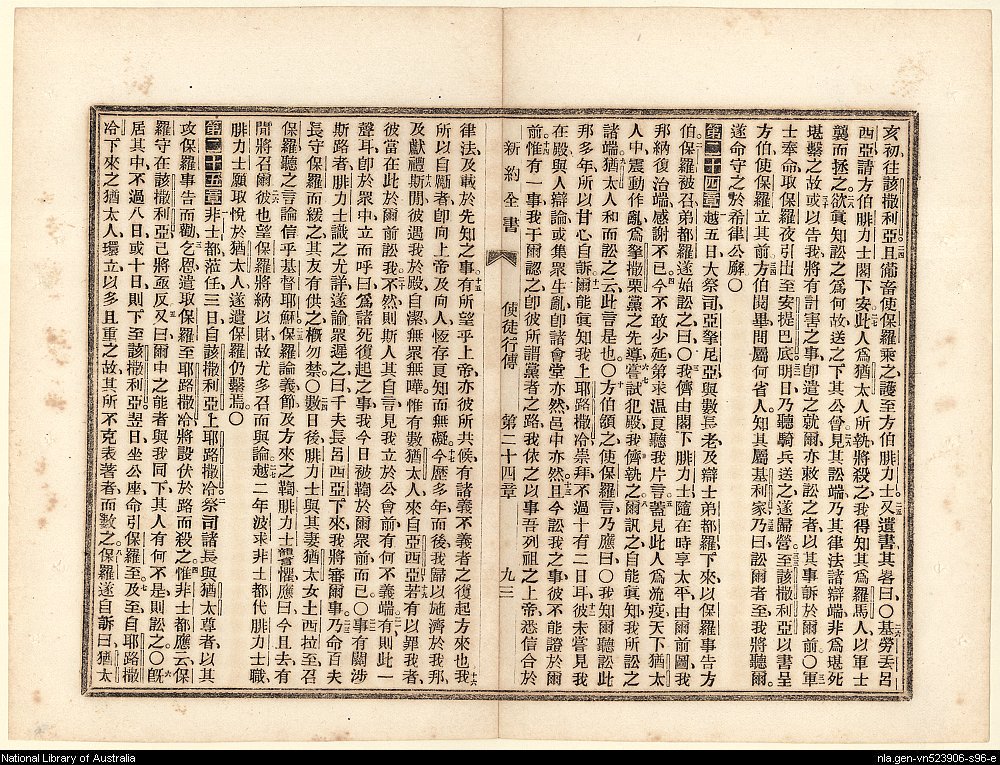 亥初往該撒利亞且備畜使保羅乘之護至方伯腓力士又遺書其畧曰〇基勞丟呂
西亞請方伯腓力士閣下安此人爲猶太人所執將殺之我得知其爲羅馬人以軍士
襲而拯之欲眞知訟之爲何故送之下其公會見其訟端乃其律法諸辯端非爲堪死
堪繫之故或以告我將有計害之事卽遣之就爾亦敕訟之者以其事訴於爾前〇軍
士奉命取保羅夜引出至安提巴底明日乃聽騎兵送之遂歸營至該撒利亞以書呈
方伯使保羅立其前方伯閱畢問屬何省人知其屬基利家乃曰訟爾者至我將聽爾
遂命守之於希律公廨〇
第二十四章越五日大祭司亞拏尼亞與數長老及辯士弟都羅下來以保羅事告方
伯保羅被召弟都羅遂始訟之曰〇我儕由閣下腓力士隨在時享太平由爾前圖我
邦納後治端感謝不已今不敢少延第求溫良聽我片言蓋見此人爲流疫天下猶太
人中震動作亂爲拏撒栗黨之先導嘗試犯殿我儕執之爾訊之自能眞知我所訟之
諸端猶太人和而訟之云此言是也〇方伯頷之使保羅言乃應曰〇我知爾聽訟此
邦多年所以甘心自訴爾能眞知我上耶路撒冷崇拜不過十有二日耳彼未嘗見我
在殿與人辯論或集衆生亂卽諸會堂亦然邑中亦然且今訟我之事彼不能證於爾
前惟有一事我于爾認之卽彼所謂黨者之路我依之以事吾列祖之上帝悉信合於
新約全書 使徒行傳 第二十四章 九三
律法及載於先知之事有所望乎上帝亦彼所共候有諸義不義者之復起方來也我
所以自勵者卽向上帝及向人恆存良知而無礙今歷多年而後我歸以施濟於我邦
及獻禮斯間彼遇我於殿自潔無衆無嘩惟有數猶太人來自亞西亞若有以罪我者
彼當在此於爾前訟我不然則斯人其自言見我立於公會前有何不義端有則此一
聲耳卽於衆中立而呼曰爲諸死復起之事我今日被鞫於爾衆前而已〇事有關涉
斯路者腓力士識之尤詳遂諭衆遲之曰千夫長呂西亞下來我將審爾事乃命百夫
長守保羅而緩之其友有供之概勿禁〇數日後腓力士與其妻猶太女士西拉至召
保羅聽之言論信乎基督耶穌保羅論義節及方來之鞫腓力士讋懼應曰今且去有
間將召爾彼也望保羅將納以財故尤多召而與論越二年波求非士都代腓力士職
腓力士願取悅於猶太人遂遺保羅仍繫焉〇
第二十五章非士都蒞任三日自該撒利亞上耶路撒冷祭司諸長與猶太尊者以其
攻保羅事告而勸乞恩遣取保羅至耶路撒冷將設伏於路而殺之惟非士都應云保
羅守在該撒利亞已將亟反又曰爾中之能者與我同下其人有何不是則訟之〇旣
居其中不過八日或十日則下至該撒利亞翌日坐公座命引保羅至及至自耶路撒
冷下來之猶太人環立以多且重之故其所不克表著者而數之保羅遂自訴曰猶太
National Library of Australia
nla.gen-vn523906-s96-e